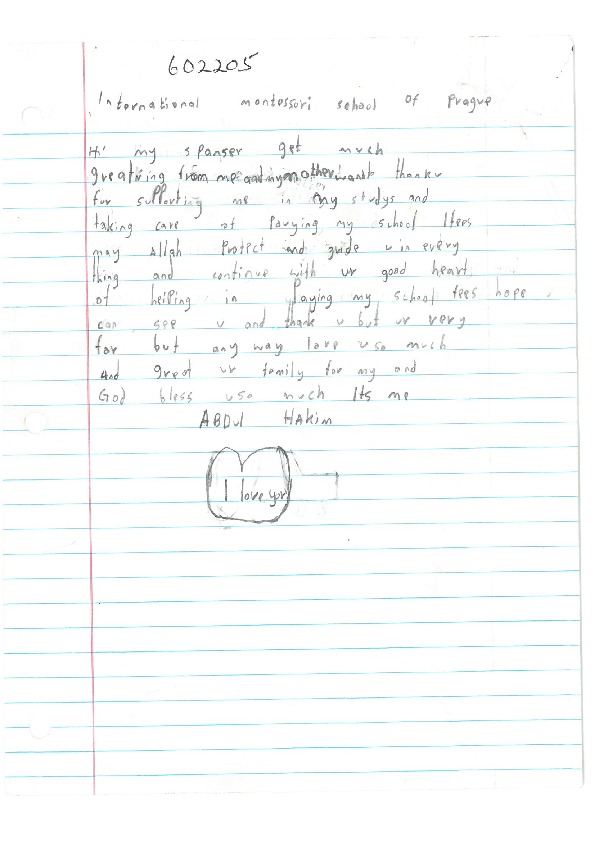 602205
International montossori school of prague
Hi my spanser get much
greatiring from me and my mother want thanku
for supporting me in my studys and
taking care of Paying my school ffees
may Allah Protect and guide u in every
thing and continue with ur good heart
of helping in Paying my school fees hope
can see u and thank u but ur very
far but any way love u so much
And great ur family for my and
God bless u so much Its me
ABDUl HAkim
I love you